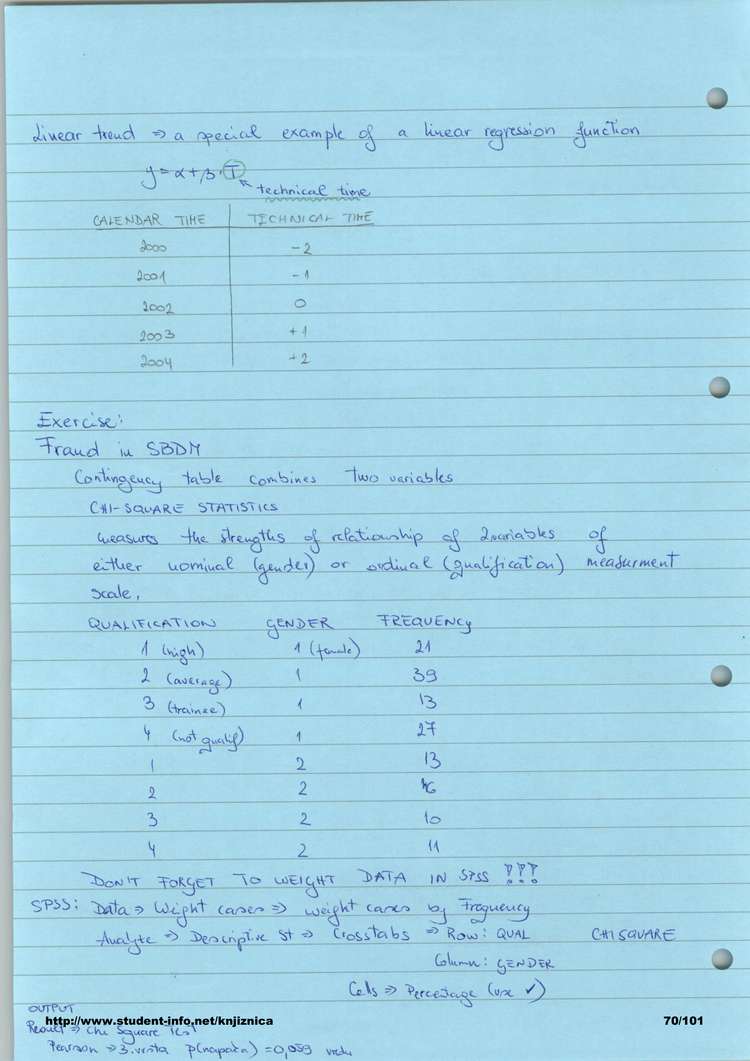 Linear trend ⇒ a special example of a linear regression function
y = α + β · T
↖ technical time
CALENDAR TIME TECHNICAL TIME
2000 - 2
2001 - 1
2002 0
2003 + 1
2004 + 2
Exercise:
Fraud in SBDM
Contingency table combines two variables
CHI-SQUARE STATISTICS
measures the strengths of relationship of 2 variables of
either nominal (gender) or ordinal (qualification) measurment
scale.
QUALIFICATION GENDER FREQUENCY
1 (high) 1 (female) 21
2 (average) 1 39
3 (trainee) 1 13
4 (not qualif) 1 27
1 2 13
2 2
3 2 10
4 2 11
DON'T FORGET TO WEIGHT DATA IN SPSS !!!
SPSS: Data ⇒ Weight cases ⇒ weight cases by Frequency
Analyze ⇒ Descriptive st ⇒ Crosstabs ⇒ Row: QUAL CHI SQUARE
Column: GENDER
Cells ⇒ Percentage (use ✓)
OUTPUT
http://www.student-info.net/knjiznica 70/101
Result ⇒ Chi Square Test
Pearson ⇒ 3. vrsta p(napaka) = 0,059